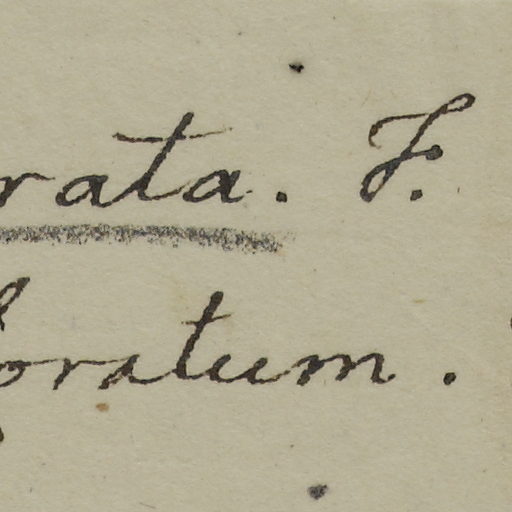 rata. F.
foratum.